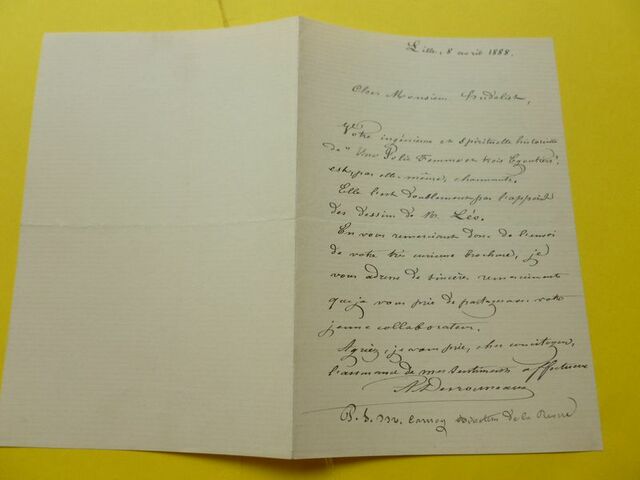 Lille, 8 avril 1888.
Cher Monsieur
Votre ingénieuse et spirituelle historiette
de "Une Jolie Femme et trois Egoutiers".
est, par elle-même, charmante.
Elle l'est doublement par l'appoint
des dessins de M. Léo.
En vous remerciant donc de l'envoi
de votre très curieuse brochure, je
vous adresse de sincères remerciements
que je vous prie de partager avec votre
jeune collaborateur.
Agréez, je vous prie, cher concitoyen,
l'assurance de mes sentiments affectueux
A Desrousseaux
P. S. Mr. Carnoy Directeur de la Revue